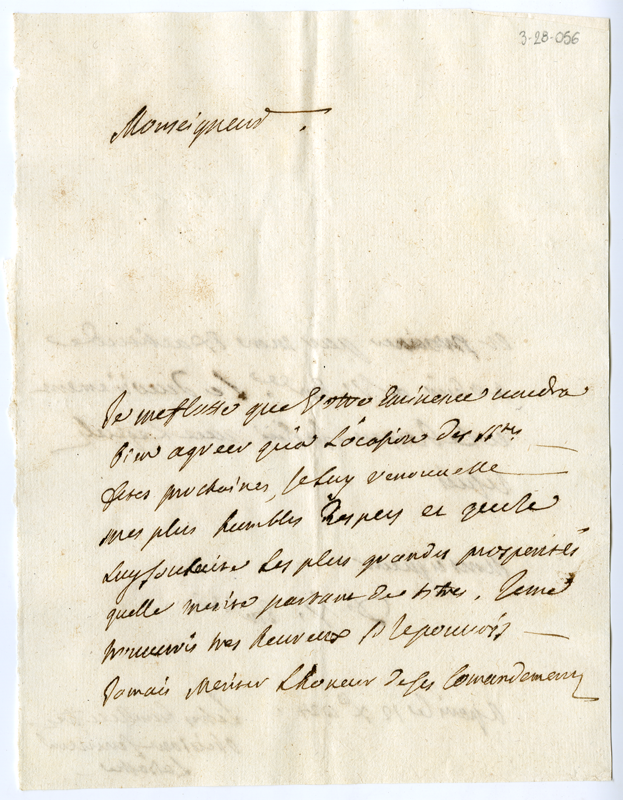 3-28-056
Monseigneur
Je me flatte que Votre Eminence voudra
bien agreer qu'a L'ocasion des Stes
fetes prochaines, Je Luy renouvelle
mes plus humbles Respets et que Je
Luy souhaite les plus grandes prosperités
quelle merite partant de titres. Je me
trouverois tres heureux sy Je pouvois
Jamais Meriter L'honeur de ses Comandemens